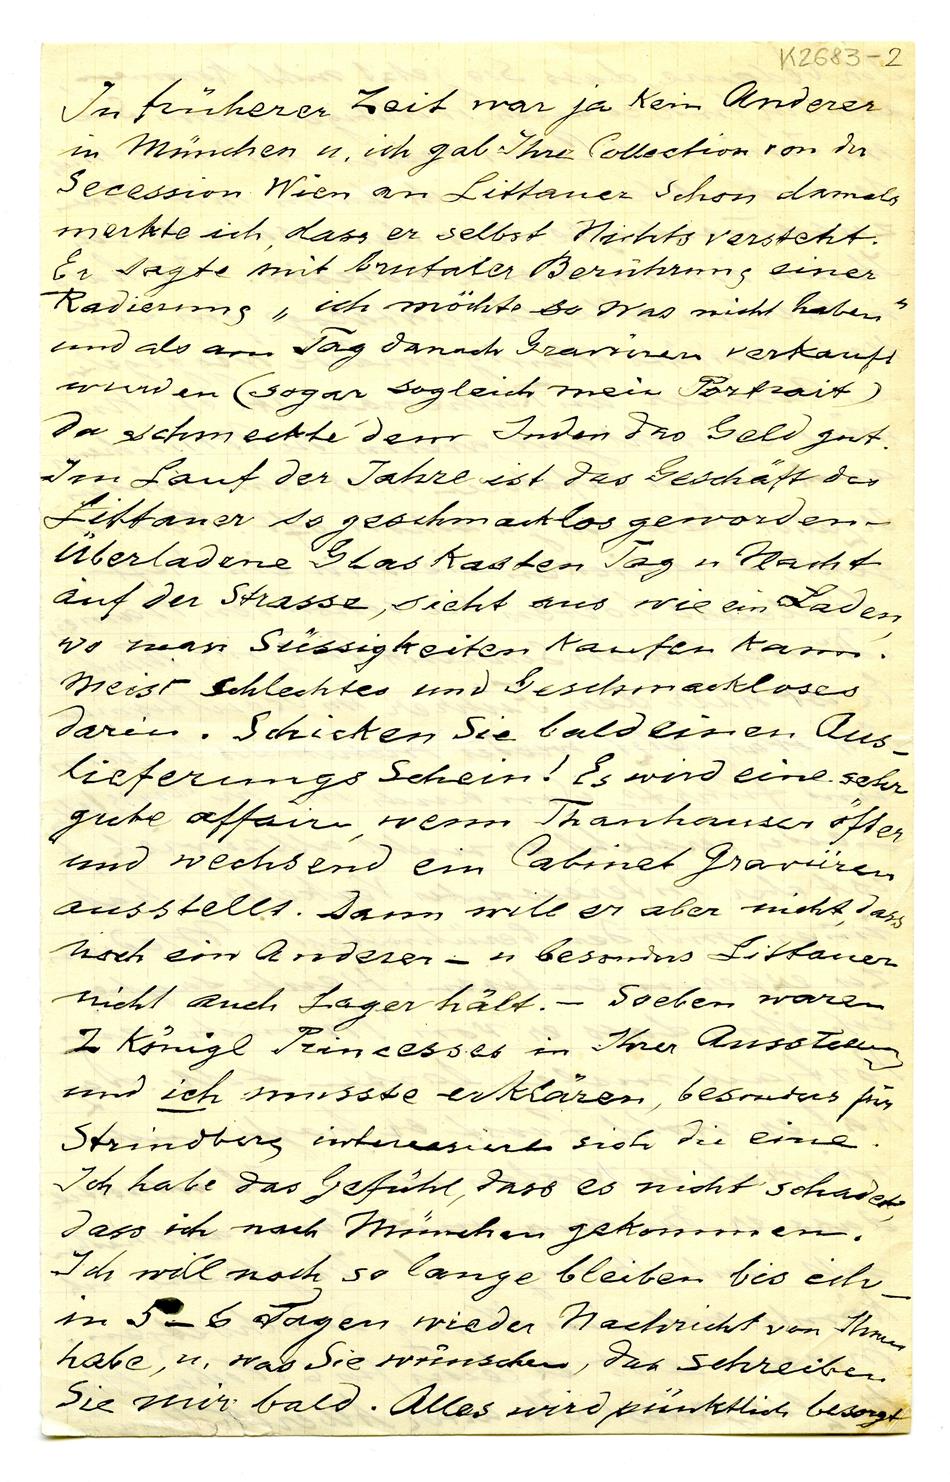 K2683-2
In früherer Zeit war ja kein Anderer
in München u. ich gab Ihre Collection von der
Secession Wien an Littauer schon damals
merkte ich, dass er selbst Nichts versteht.
Er sagte mit brutaler Berührung einer
Radierung „ich möchte so was nicht haben"
und als am Tag danach Gravüren verkauft
wurden (sogar sogleich mein Portrait)
da schmeckte dem Juden das Geld gut.
Im Lauf der Jahre ist das Geschäft des
Littauer so geschmacklos geworden –
Überladene Glas Kasten Tag u Nacht
auf der Strasse, sieht aus wie ein Laden,
wo man Süssigkeiten kaufen kann.
Meist schlechtes und Geschmackloses
darin. Schicken Sie bald einen Aus-
lieferungs Schein! Es wird eine sehr
gute affaire, wenn Thanhauser öfter
und wechsend ein Cabinet Gravüren
ausstellt. Dann will er aber nicht, dass
noch ein Anderer – u besonders Littauer
nicht auch Lager hält. – Soeben waren
2 Königl Princesses in Ihrer Ausstellung
und ich musste erklären, besonders für
Strindberg interessiert sich die eine.
Ich habe das Gefühl, dass es nicht schadet,
dass ich nach München gekommen.
Ich will noch so lange bleiben bis ich –
in 5 – 6 Tagen wieder Nachricht von Ihnen
habe, u. was Sie wünschen, das schreiben
Sie mir bald. Alles wird pünktlich besorgt